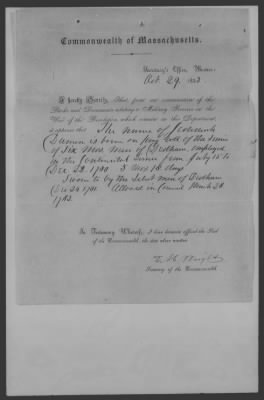 Commonwealth of Massachusetts.
Secretary's Office, Boston,
Oct. 29. 1853.
I hereby Certify, That from an examination of the
Books and Documents relating to Military Service in the
War of the Revolution which remain in this Department,
it appears that The name of
Damon is borne on Pay Roll of the names
of Six Mos. Men of Dedham employed
in the Continental Service from July 15 to
Dec. 22. 1780. 5 mos. 16 days
Sworn to by the Select men of Dedham
Dec 24. 1781. Allowed in Council March 20.
1782.
In Testimony Whereof, I have hereunto affixed the Seal
of the Commonwealth, the date above written
E. M. Wright
Secretary of the Commonwealth